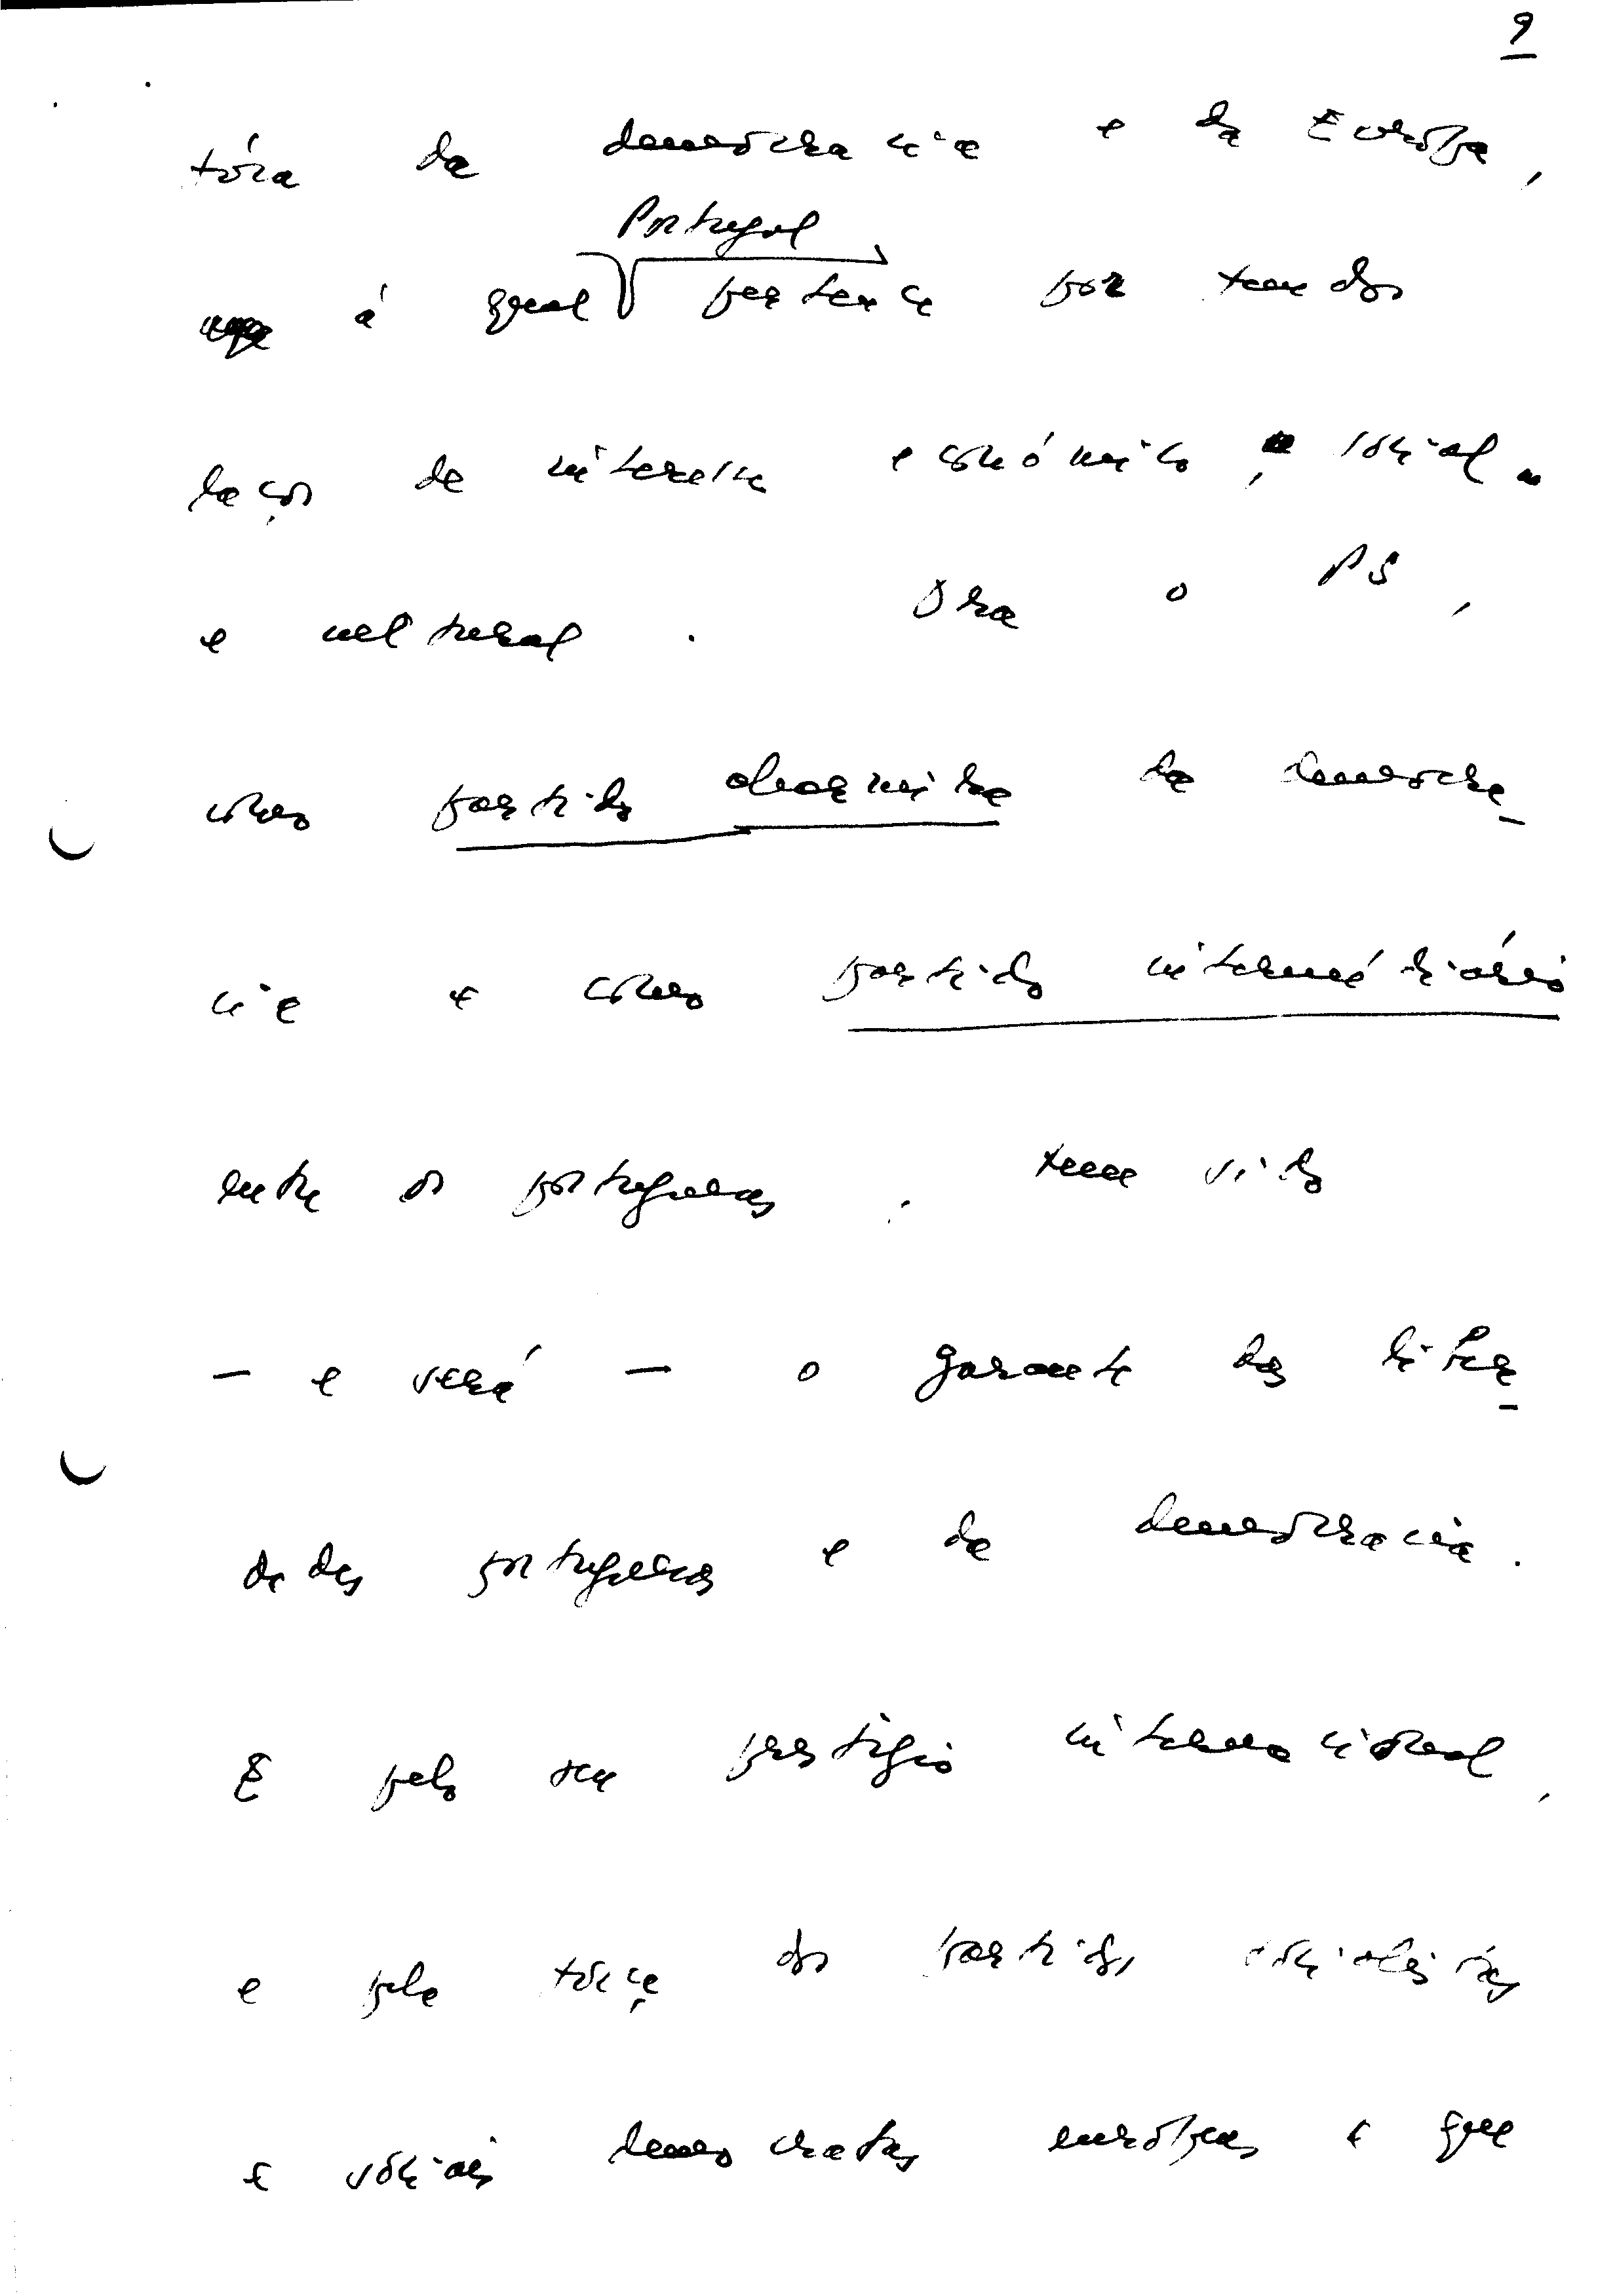 9
tória da democracia e da Europa,
Portugal
à qual pertence por tantos
laços de interesse económico, social
e cultural. Ora o PS,
como partido charneira da democra_
cia e como partido intermédiário
entre os portugueses, tem sido
— e será — o garante das liber_
dades portuguesas e da democracia.
E pelo seu prestígio internacional,
e pela força dos partidos socialistas
e sociais democratas europeus é que